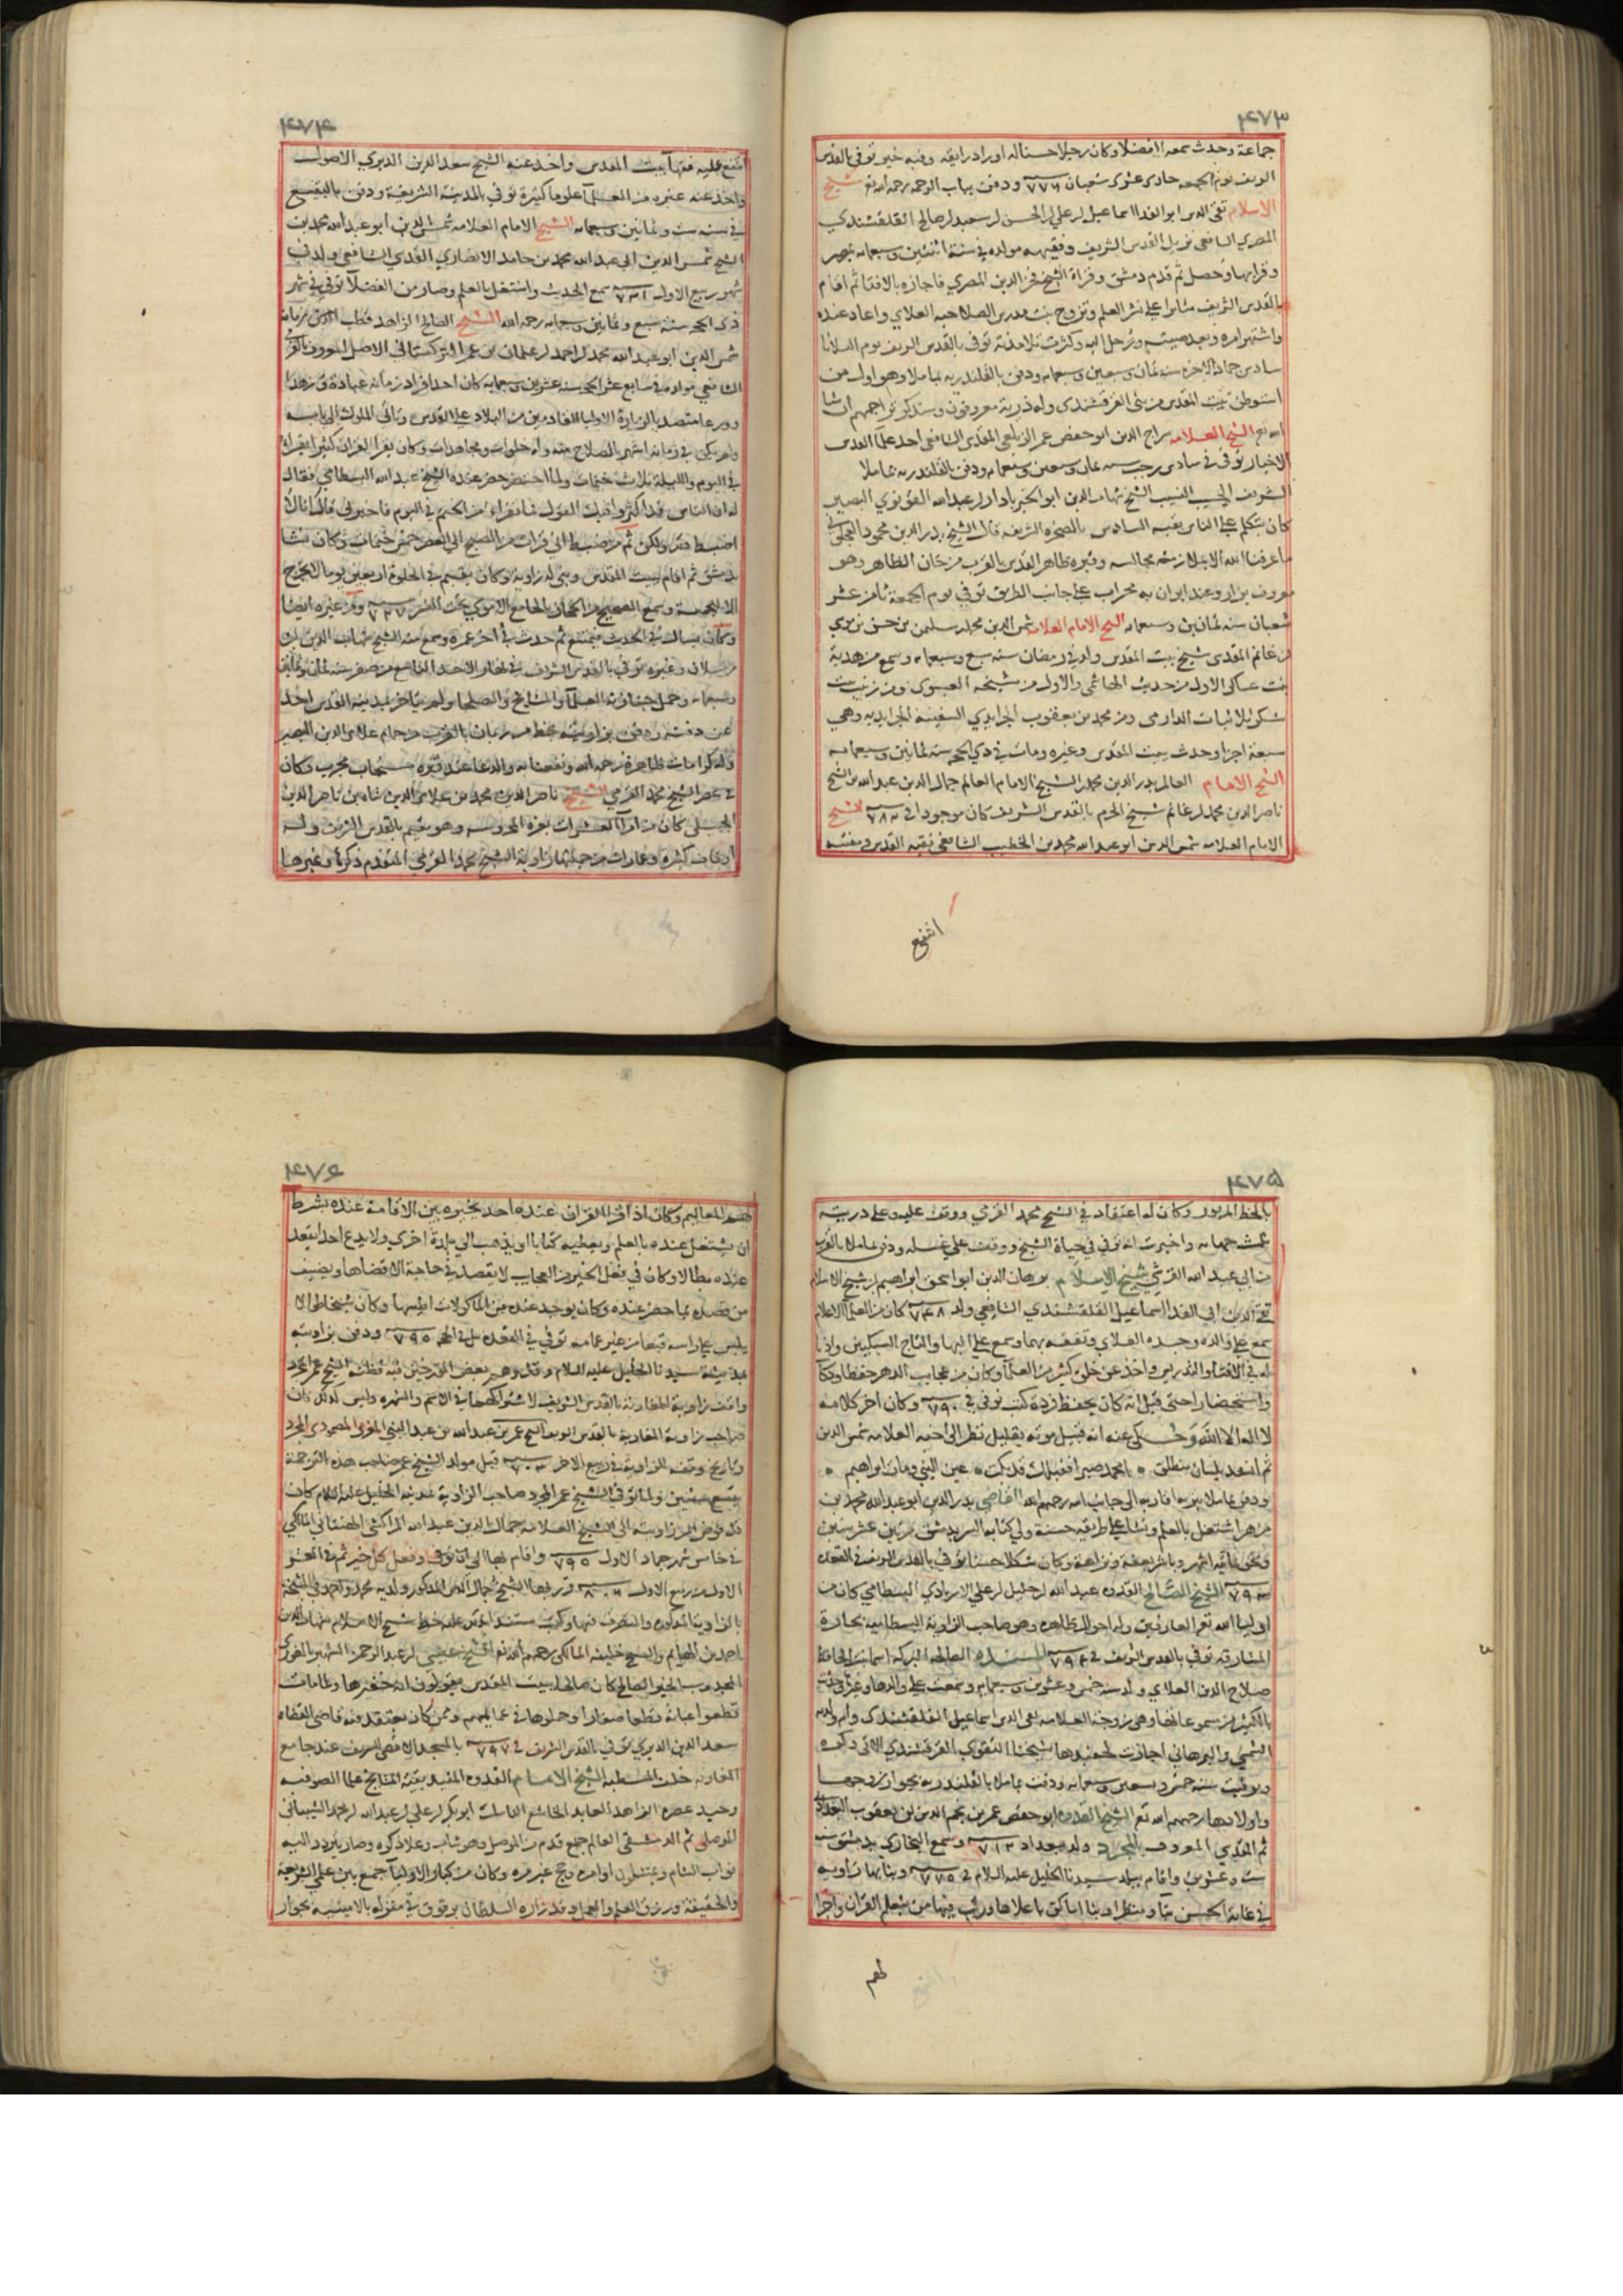 ٤٧٣
جماعة وحدث سمعه الفضلا وكان رجلا حسنا له اوراد رايقه وفيه خير توفي بالقدس
الشريف يوم الجمعه حادي عشرى شعبان ٧٧٦ ودفن بباب الرحمه رحمه الله تع شيخ
الاسلام تقى الدين ابو الفدا اسماعيل بن علي بن الحسن بن سعيد بن صالح القلقشندي
المصري الشافعي نزيل القدس الشريف وفقيهه مولده في سنة اثنتين وسبعمايه بمصر
وقرا بها وحصل ثم قدم دمشق وقراة الشيخ فخر الدين المصري فاجازه بالافتا ثم اقام
بالقدس الشريف مثابرا على نشر العلم وتزوج بنت مدرس الصلاحيه العلاي واعاد عنده
واشتهر امره وبعد صيته ورحل اليه وكثرت تلامذته توفي بالقدس الشريف يوم الثلاثا
سادس جماد الاخره سنه ثمان وسبعين وسبعمايه ودفن بالقلندريه بماملا وهو اول من
استوطن بيت المقدس من بنى القرقشندي وله ذرية معروفون وسنذكر تراجمهم ان شا
الله تع الشيخ العلامه سراج الدين ابو حفص عمر الزيلعي المقدسي الشافعي احد علما القدس
الاخيار توفي في سادس رجب سنه ثمان وسبعين وسبعمايه ودفن بالقلندريه بماملا
الشريف الحسيب النسيب الشيخ شهاب الدين ابو الخير بادار بن عبد الله القونوي البصير
كان يتكلم على الناس بقبه السادس بالصخره الشريفه قال الشيخ بدر الدين محمود العجلوني
ما عرفنا الله الا بملازمته مجالسه وقبره ظاهر القدس بالقرب من خان الظاهر وهو
معروف يزار وعند ايوان به محراب على جانب الطريق توفي يوم الجمعة ثامن عشر
شعبان سنه ثمانين وسبعمايه الشيخ الامام العلامه شمس الدين محمد بن سليمن بن حسن بن موسي
بن غانم المقدسي شيخ بيت المقدس ولد في رمضان سنه سبع وسبعمايه وسمع من هدية
بنت عساكر الاول من حديث الهاشمي والاول من مشيخه العيسوي ومن زينب بنت
شكر ثلاثيات الدارمي ومن محمد بن يعقوب الجرايدي السفينه الجرايديه وهي
سبعة اجزا وحدث ببيت المقدس وغيره ومات في ذي الحجه سنه ثمانين وسبعمايه
الشيخ الامام العالم بدر الدين محمد بن الشيخ الامام العالم جمال الدين عبد الله بن الشيخ
ناصر الدين محمد بن غانم شيخ الحرم بالقدس الشريف كان موجودا في ٧٨٢ الشيخ
الامام العلامه شمس الدين ابو عبد الله محمد بن الخطيب الشافعي فقيه القدس ومفتيه
انتفع
٤٧٤
انتفع عليه فقها بيت المقدس واخذ عنه الشيخ سعد الدين الديري الاصول
واخذ عنه غيره من العلما علوما كثيرة توفي بالمدينه الشريفة ودفن بالبقيع
في سنه ست وثمانين وسبعمايه الشيخ الامام العلامه شمس الدين ابو عبد الله محمد بن
الشيخ شمس الدين ابي عبد الله محمد بن حامد الانصاري القدسي الشافعي ولد في
شهر ربيع الاول ٧٣١ سمع الحديث واشتغل بالعلم وصار من الفضلا توفي في شهر
ذي الحجه سنه سبع وثمانين وسبعمايه رحمه الله الشيخ الصالح الزاهد قطب الدين بن
شمس الدين ابو عبد الله محمد بن احمد بن عثمان بن عمر التركستاني الاصل المعروف بالقرمي
الشافعي مولده في سابع عشر الحجه سنه عشرين وسبعمايه كان احد افراد زمانه عبادة وزهدا
وورعا متصد بالزيارة الاوليا القادمين من البلاد على القدس وتاتي الملوك الى بابه
ولم يكن في زمانه اشهر بالصلاح منه وله خلوات ومجاهدات وكان يقرا القران كثيرا يقرا
في اليوم والليله ثلاث ختمات ولما احتضر حضر عنده الشيخ عبد الله البسطامي فقال
له ان الناس قد اكثروا فيك القول فيما تقراه من الختم في اليوم فاخبرني فقال انا لم
اضبط ولكن ثم من ضبط اني قرات من الصبح الى العصر خمس ختمات وكان نشا
بدمشق ثم اقام ببيت المقدس وبنى له زاوية وكان يقيم في الخلوة اربعين يوما لا يخرج
الا للجمعة وسمع الصحيح من الحجار بالجامع الاموي تحت النسر ومن غيره ايضا
وكان يسال في الحديث فيمتنع ثم حدث في اخر عمره وسمع منه الشيخ شهاب الدين بن
رسلان وغيره توفي بالقدس الشريف في نهار الاحد التاسع من صفر سنه ثمان وثمانين
وسبعمايه وحمل جنازته العلما والمشايخ والصلحا ولم يتاخر بمدينه القدس احد
عن دفنه ودفن بزاويته بخط مرزبان بالقرب من حمام علا الدين البصير
وله كرامات ظاهرة رحمه الله ونفعنا به والدعا عند قبره مستجاب مجرب وكان
في عصر الشيخ محمد القرمي الشيخ ناصر الدين محمد بن علا الدين شاه بن ناصر الدين
الجبيلي كان من امرا العشرات بغزه المحروسه وهو مقيم بالقدس الشريف وله
اوقاف كثيره وعمارات من جملتها زاوية الشيخ محمد القرمي المتقدم ذكره وغيرها
٤٧٥
بالخط المزبور وكان له اعتقاد في الشيخ محمد القرمي ووقف عليه وعلى ذريته
ثلث جهاته واخبرت انه توفي في حياة الشيخ ووقف على غسله ودفن بماملا بالقرب
من ابي عبد الله القرشي شيخ الاسلام برهان الدين ابو اسحق ابراهيم بن شيخ الاسلام
تقي الدين ابي الفدا اسماعيل القلقشندي الشافعي ولد ٧٤٨ كان من العلما الاعلام
سمع على والده وجده العلاي وتفقه بهما وسمع على البها والتاج السبكيين واذنا
له في الافتا والتدريس واخذ عن خلق كثير من العلما وكان من عجايب الدهر حفظا وذكا
واستحضارا حتى قيل انه كان يحفظ زدة كتب توفي في ٧٩٠ وكان اخر كلامه
لا اله الا الله وحكى عنه انه قبيل موته بقليل نظر الى اخيه العلامه شمس الدين
ثم انشد بلسان منطلق امحمد صبرا فقبلك قد بكت عين النبي ومات ابراهيم
ودفن بماملا بتربه اقاربه الى جانب ابيه رحمهم الله القاضي بدر الدين ابو عبد الله محمد بن
مزهر اشتغل بالعلم ونشا على طريقه حسنة ولي كتابه السر بدمشق مرتين عشر سنين
ونحو ثمانيه اشهر وباشر بعفة ونزاهة وكان شكلا حسنا توفي بالقدس الشريف في القعده
٧٩٣ الشيخ الصالح القدوه عبد الله بن خليل بن علي الاسدابادي البسطامي كان من
اوليا الله تع العارفين وله احوال ظاهره وهو صاحب الزاوية البسطاميه بحارة
المشارقه توفي بالقدس الشريف في ٧٩٤ السيده الصالحه البركه اسما بنت الحافظ
صلاح الدين العلاي ولد سنه خمس وعشرين وسبعمايه وسمعت على والدها وغيره وحدثت
بالكثير من مسموعاتها وهي زوجة العلامه تقى الدين اسماعيل القلقشندي وام ولديه
الشمسي والبرهاني اجازت لحفيدها شيخنا التقوي القرقشندي الاتي ذكره
وتوفيت سنه خمس وتسعين وسبعمايه ودفنت بماملا بالقلندريه بجوار زوجها
واولادها رحمهم الله تع الشيخ القدوه ابو حفص عمر بن نجم الدين بن يعقوب البغدادي
ثم المقدسي المعروف بالمجرد ولد ببغداد ٧١٢ وسمع البخاري بدمشق سنه
ست وعشرين واقام ببلد سيدنا الخليل عليه السلام في ٧٧٥ وبنا بها زاويه
في غاية الحسن بنا ومنظرا وبنا اماكن باعلاها ورتب فيها من يعلم القران واجرا
لهم
٤٧٦
لهم المعاليم وكان اذا قرا القران عنده احد يخيره بين الاقامة عنده بشرط
ان يشتغل عنده بالعلم ويعطيه كتابا او يذهب الى بلدة اخرى ولا يدع احدا يقعد
عنده بطالا وكان في فعل الخير من العجايب لا يقصد في حاجة الا قضاها ويضيف
من قصده بما حضر عنده وكان يوجد عنده من الماكولات اطيبها وكان شيخا طوالا
يلبس على راسه قبعا من غير عمامه توفي في المقدس في الحجه ٧٩٥ ودفن بزاويته
بمدينة سيدنا الخليل عليه السلام وقد وهم بعض المؤرخين فيه فظنه الشيخ عمر المجرد
واقف زاوية المغاربة بالقدس الشريف لاشتراكهما في الاسم والشهره وليس كذلك فان
صاحب زاوية المغاربة بالقدس الشريف الشيخ عمر بن عبد الله بن عبد النبي المغربي المصمودي المجرد
وتاريخ وقفه للزاوية في ربيع الاخر ٧٠٣ قبل مولد الشيخ عمر صاحب هذه الترجمة
بتسع سنين ولما توفي الشيخ عمر المجرد صاحب الزاوية بمدينه الخليل عليه السلام كان
قد فوض امر زاويته الى الشيخ العلامه جمال الدين عبد الله المراكشي الهنتاتي المالكي
في خامس شهر جماد الاول ٧٩٥ واقام بها الى ان توفي وفعل كل خير ثم في العشر
الاول من ربيع الاول ٨٠٦ قرر بها الشيخ جمال الدين المذكور ولديه محمد واحمد في المشيخة
بالزاوية المذكوره والتصرف فيها وكتب مستند عليه خط شيخ الاسلام شهاب الدين
احمد بن الهايم والشيخ خليفه المالكي رحمهم الله تع الشيخ عيسى بن عبد الرحمن الشهير بالغوري
المجدوب الخير الصالح كان صالحا ببيت المقدس يقولون انه خفيرها ولما مات
قطعوا عباته قطعا صغارا وجعلوها في عمايمهم وممن كان يعتقد فيه قاضي القضاه
سعد الدين الديري توفي بالقدس الشريف في ٧٩٧ بالمسجد الاقصى الشريف عند جامع
المغاربه خلف المسطبه الشيخ الامام القدوه المفيد بقية المشايخ علما الصوفيه
وحيد عصره الزاهد العابد الخاشع الناسك ابو بكر بن علي بن عبد الله بن محمد الشيبانى
الموصلي ثم الدمشقى العالم جمع قدم من الموصل وهو شاب وعلا ذكره وصار يتردد اليه
نواب الشام ويمتثلون اوامره وحج غير مره وكان من كبار الاوليا جمع بين علمي الشريعة
والحقيقة ورزق العلم والعمل وقد زاره السلطان برقوق في منزله بالامينيه بجوار